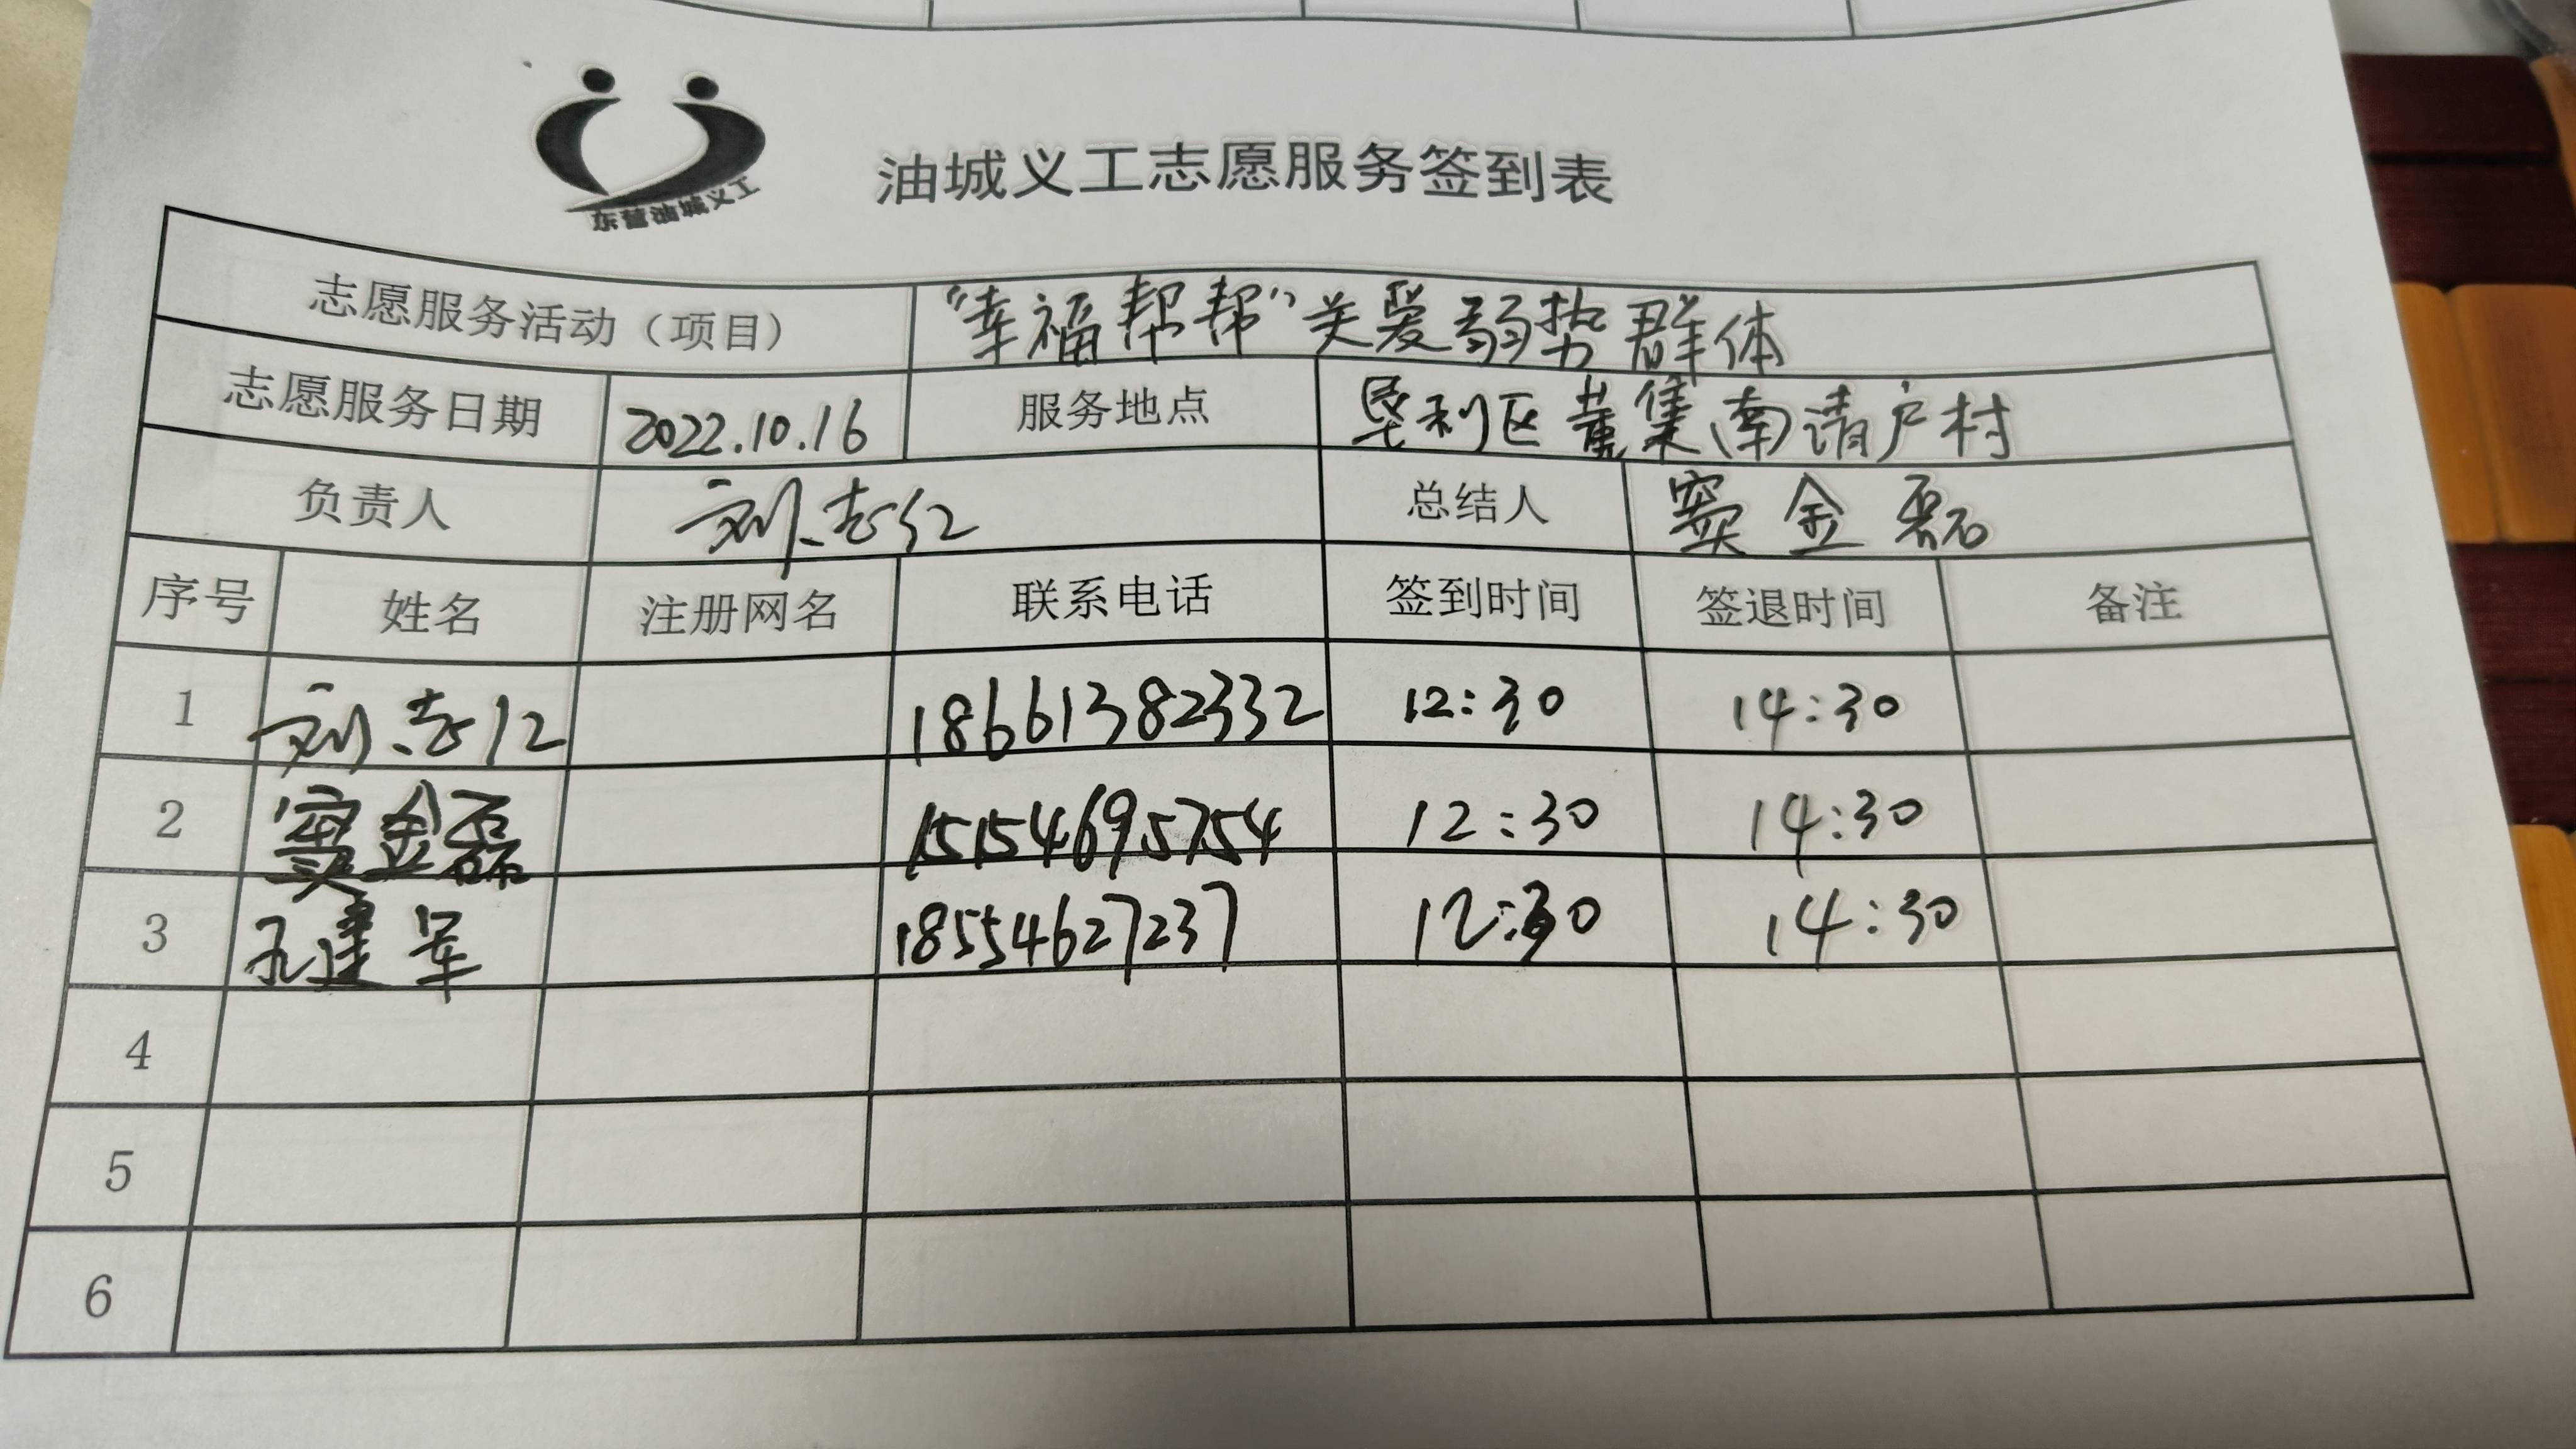 东营油城义工
油城义工志愿服务签到表
志愿服务活动（项目） “幸福帮帮”关爱弱势群体
志愿服务日期 2022.10.16 服务地点 垦利区董集南请户村
负责人 刘志仁 总结人 窦金磊
序号 姓名 注册网名 联系电话 签到时间 签退时间 备注
1 刘志仁 18661382332 12:30 14:30
2 窦金磊 15154695754 12:30 14:30
3 孔建军 18554627237 12:30 14:30
4
5
6